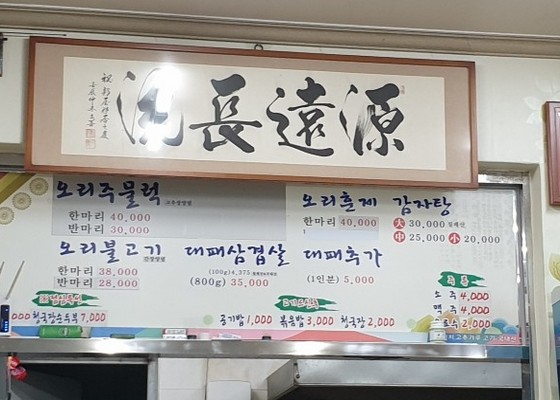 源遠長流
오리주물럭
한마리 40,000
반마리 30,000
오리훈제
한마리 40,000
감자탕
大 30,000
中 25,000 小 20,000
오리불고기
한마리 38,000
반마리 28,000
대패삼겹살
(100g)4,375
(800g) 35,000
대패추가
(1인분) 5,000
소 주 4,000
맥 주 4,000
2,000
청국장순두부 7,000
공기밥 1,000 볶음밥 3,000 청국장 2,000